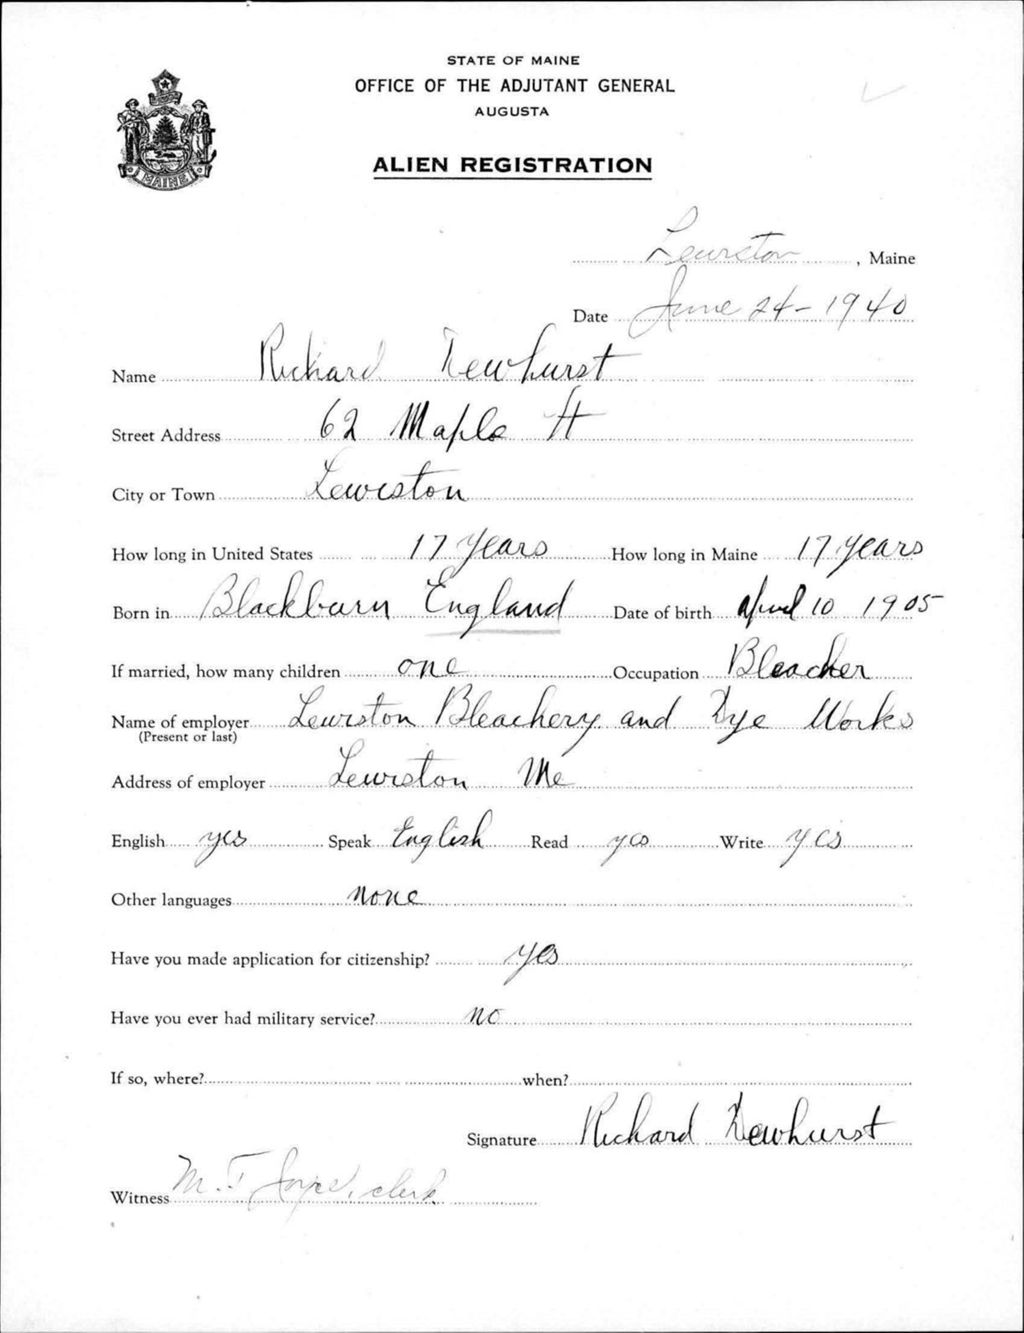 STATE OF MAINE
OFFICE OF THE ADJUTANT GENERAL
AUGUSTA
ALIEN REGISTRATION
MAINE
Lewiston, Maine
Date June 24-1940
Name Richard Dewhurst
Street Address 62 Maple St
City or Town Lewiston
How long in United States 17 years How long in Maine 17 years
Born in Blackburn England Date of birth April 10 1905
If married, how many children one Occupation Bleacher
Name of employer Lewiston Bleachery and Dye Works
(Present or last)
Address of employer Lewiston Me
English yes Speak English Read yes Write yes
Other languages none
Have you made application for citizenship? yes
Have you ever had military service? no
If so, where? when?
Signature Richard Dewhurst
Witness M. F. Joyce, clerk